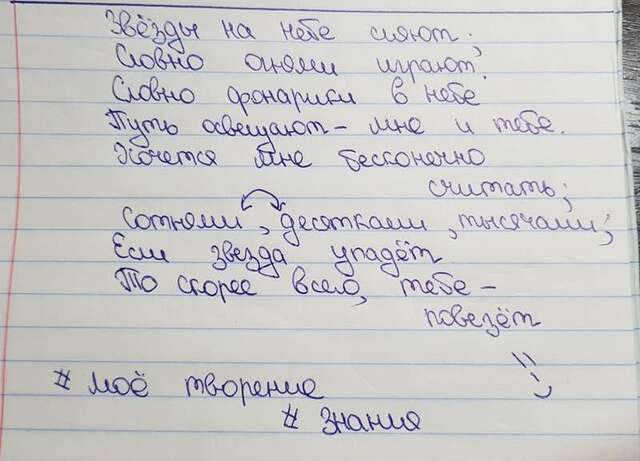 Звёзды на небе сияют;
Словно огнями играют.
Словно фонарики в небе
Путь освещают - мне и тебе.
Хочется мне бесконечно
считать;
Сотнями, десятками, тысячами;
Если звезда упадёт
То скорее всего, тебе -
повезёт
# моё творение
# знания